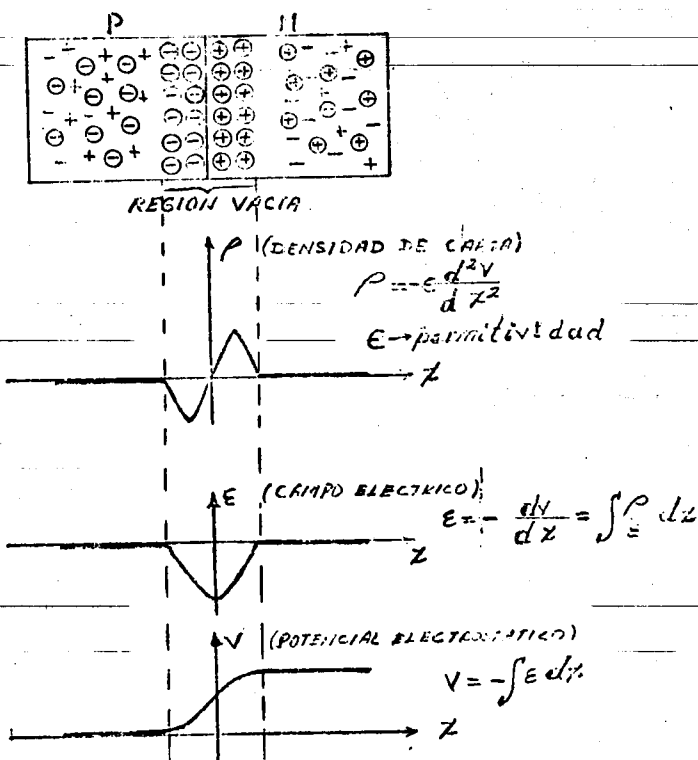 P N
REGION VACIA
ρ (DENSIDAD DE CARGA)
ρ = -ε d²V / dx²
ε → permitividad
x
ε (CAMPO ELECTRICO)
ε = - dv / dx = ∫ ρ/ε dx
x
V (POTENCIAL ELECTROSTATICO)
V = -∫ ε dx
x